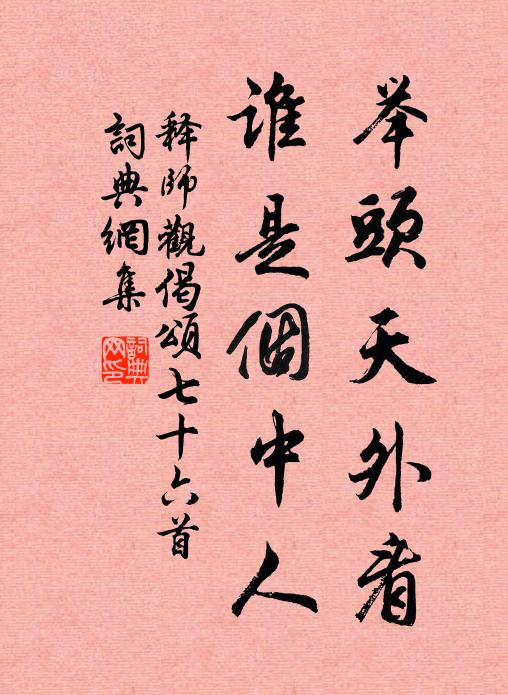 举頭天外看
誰是個中人
释師觀偈頌七十六首
詞典網集
詞典網印